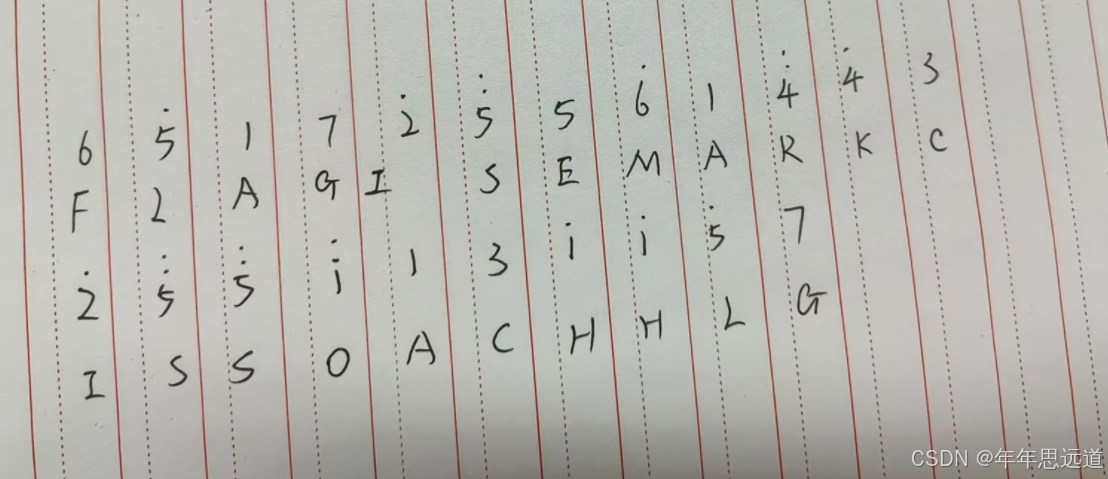 6 5̇ 1 7 2̇ 5̈ 5 6̇ 1 4̈ 4̇ 3
F L A G I S E M A R K C
2̇ 5̈ 5̈ 1̈ 1 3 1̇ 1̇ 5̇ 7
I S S O A C H H L G
CSDN @年年思远道